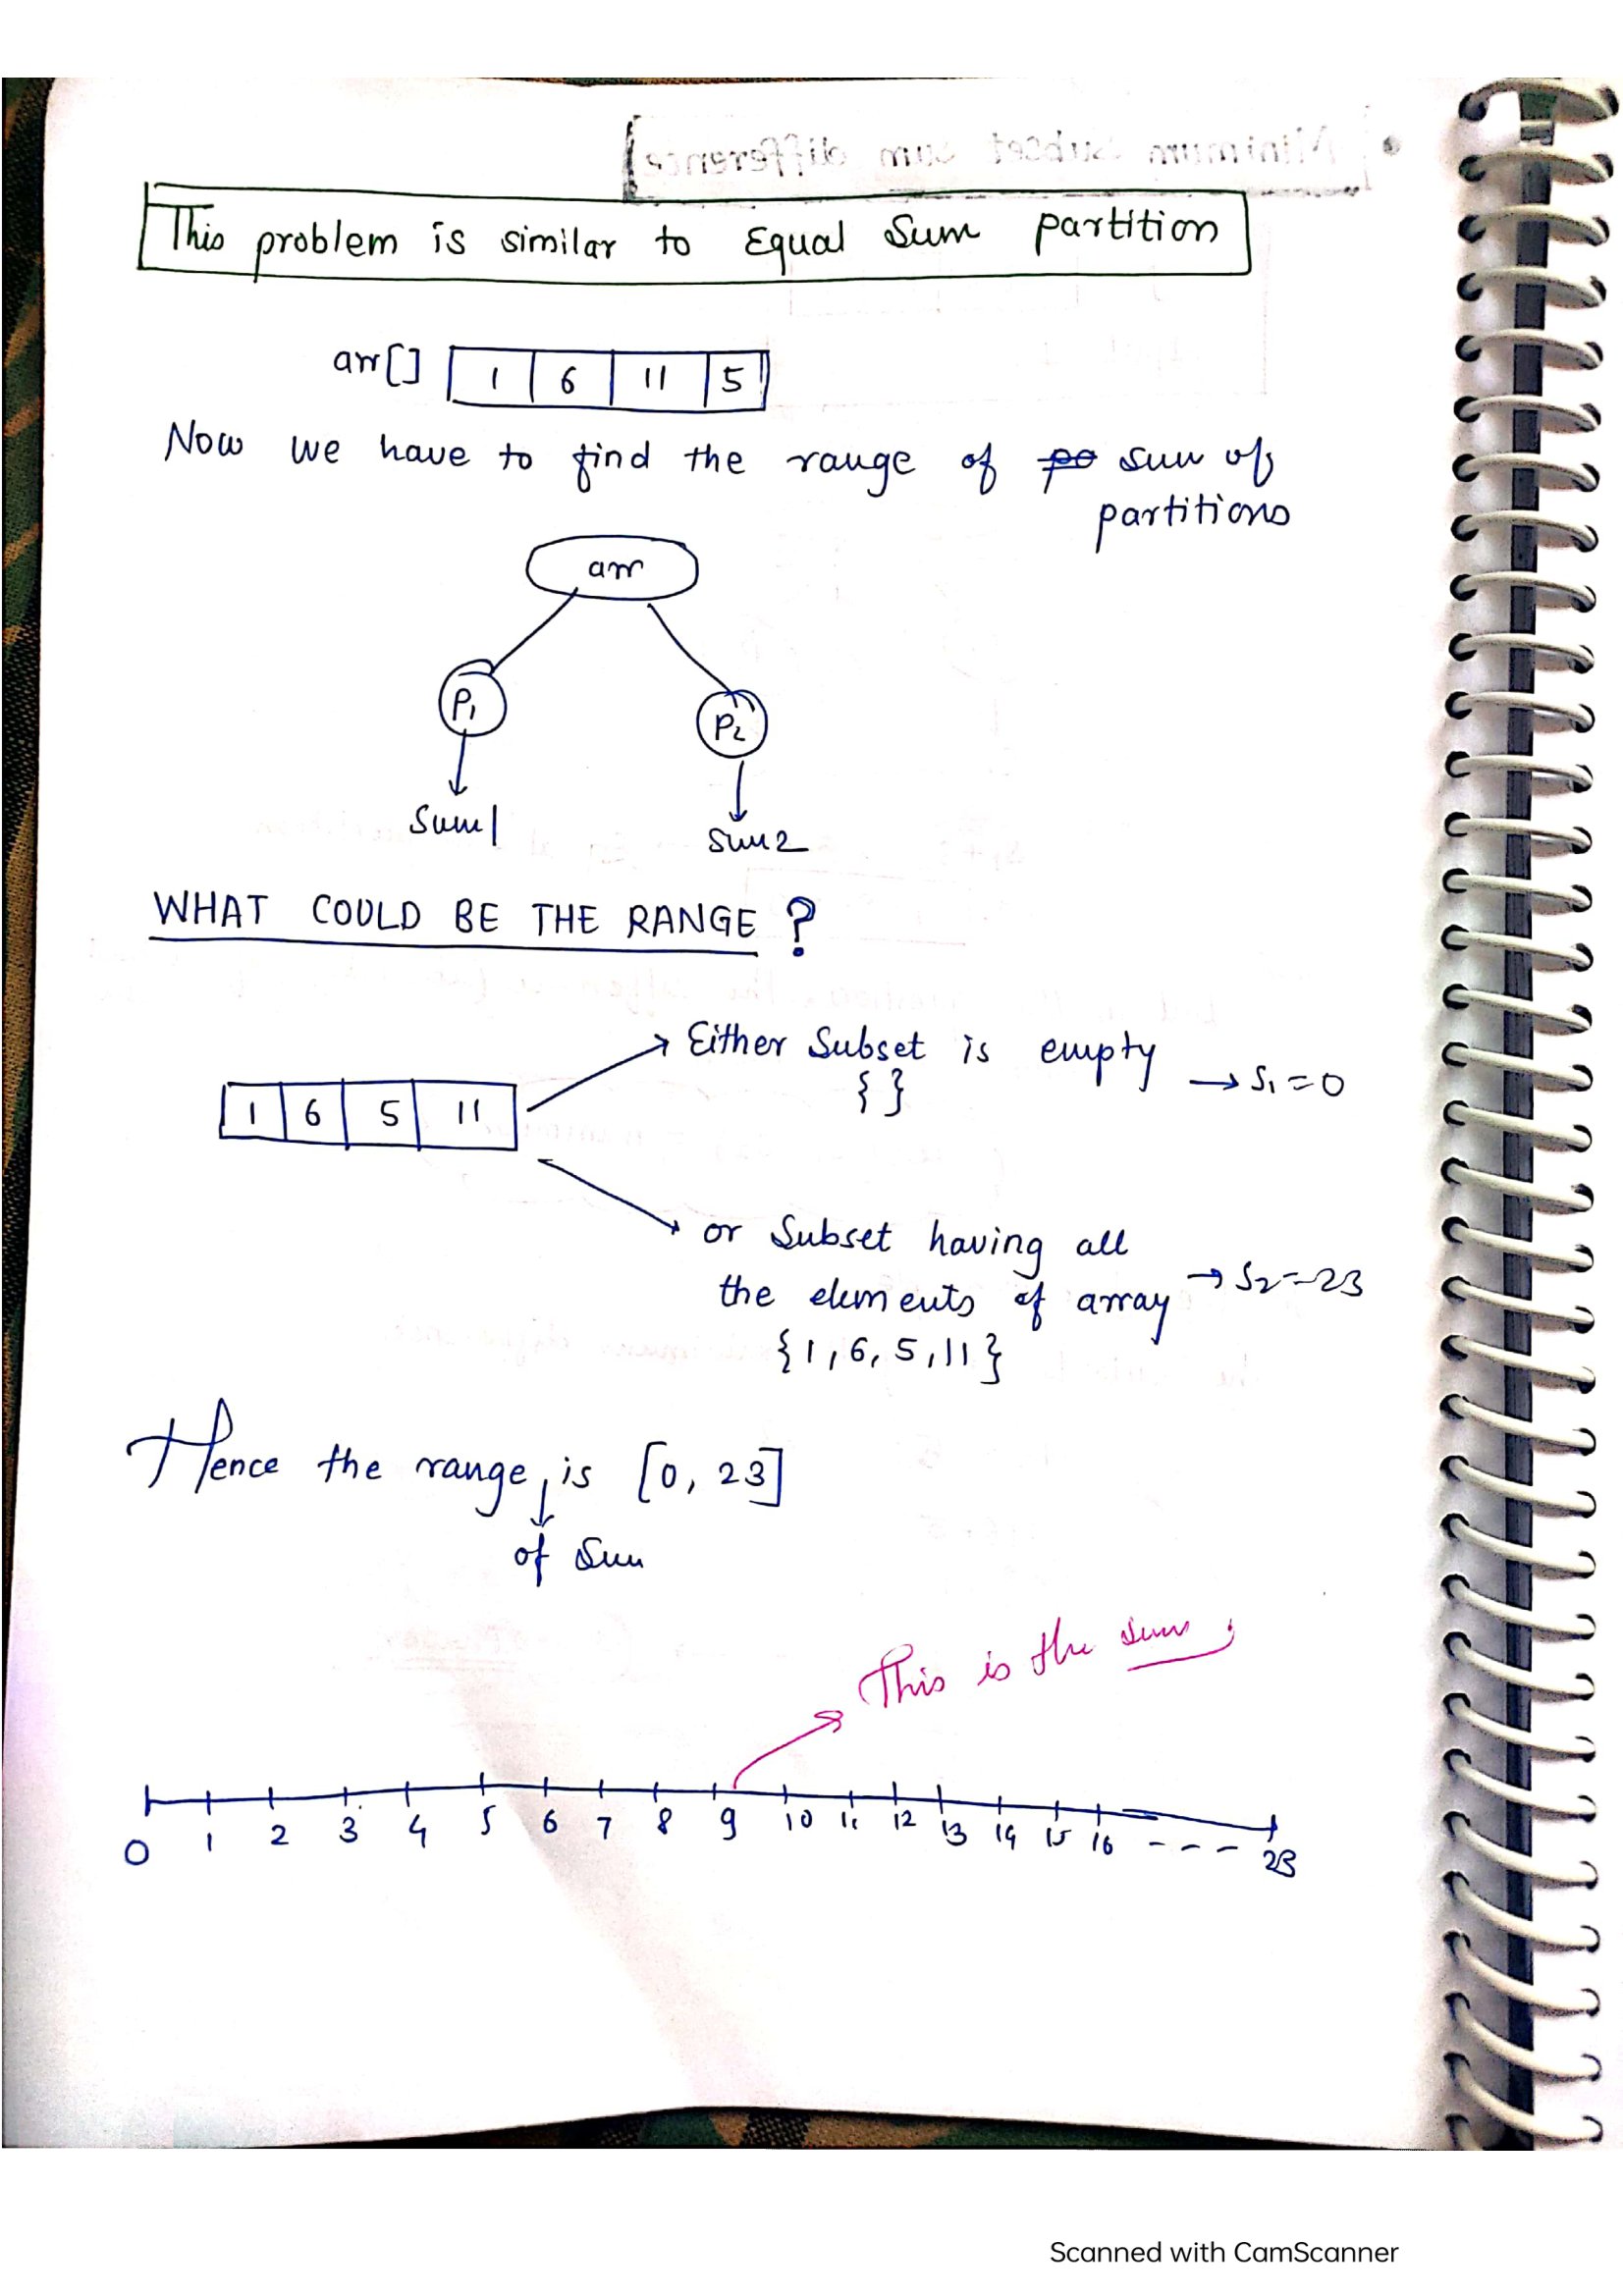 Minimum subset sum difference
This problem is similar to Equal Sum partition
arr[] 1 6 11 5
Now we have to find the range of po sum of
partitions
arr
P1
P2
Sum1
Sum2
WHAT COULD BE THE RANGE ?
Either Subset is empty → S1 = 0
{ }
1 6 5 11
or Subset having all
the elements of array → S2 = 23
{1, 6, 5, 11}
Hence the range is [0, 23]
of Sum
This is the sum
0 1 2 3 4 5 6 7 8 9 10 11 12 13 14 15 16 - - - 23
Scanned with CamScanner